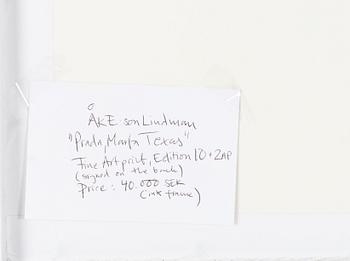 ÅKE:son Lindman
"Prada, Marfa Texas"
Fine Art print, Edition 10+2AP
(signed on the back)
Price: 40.000 SEK
(ink frame)